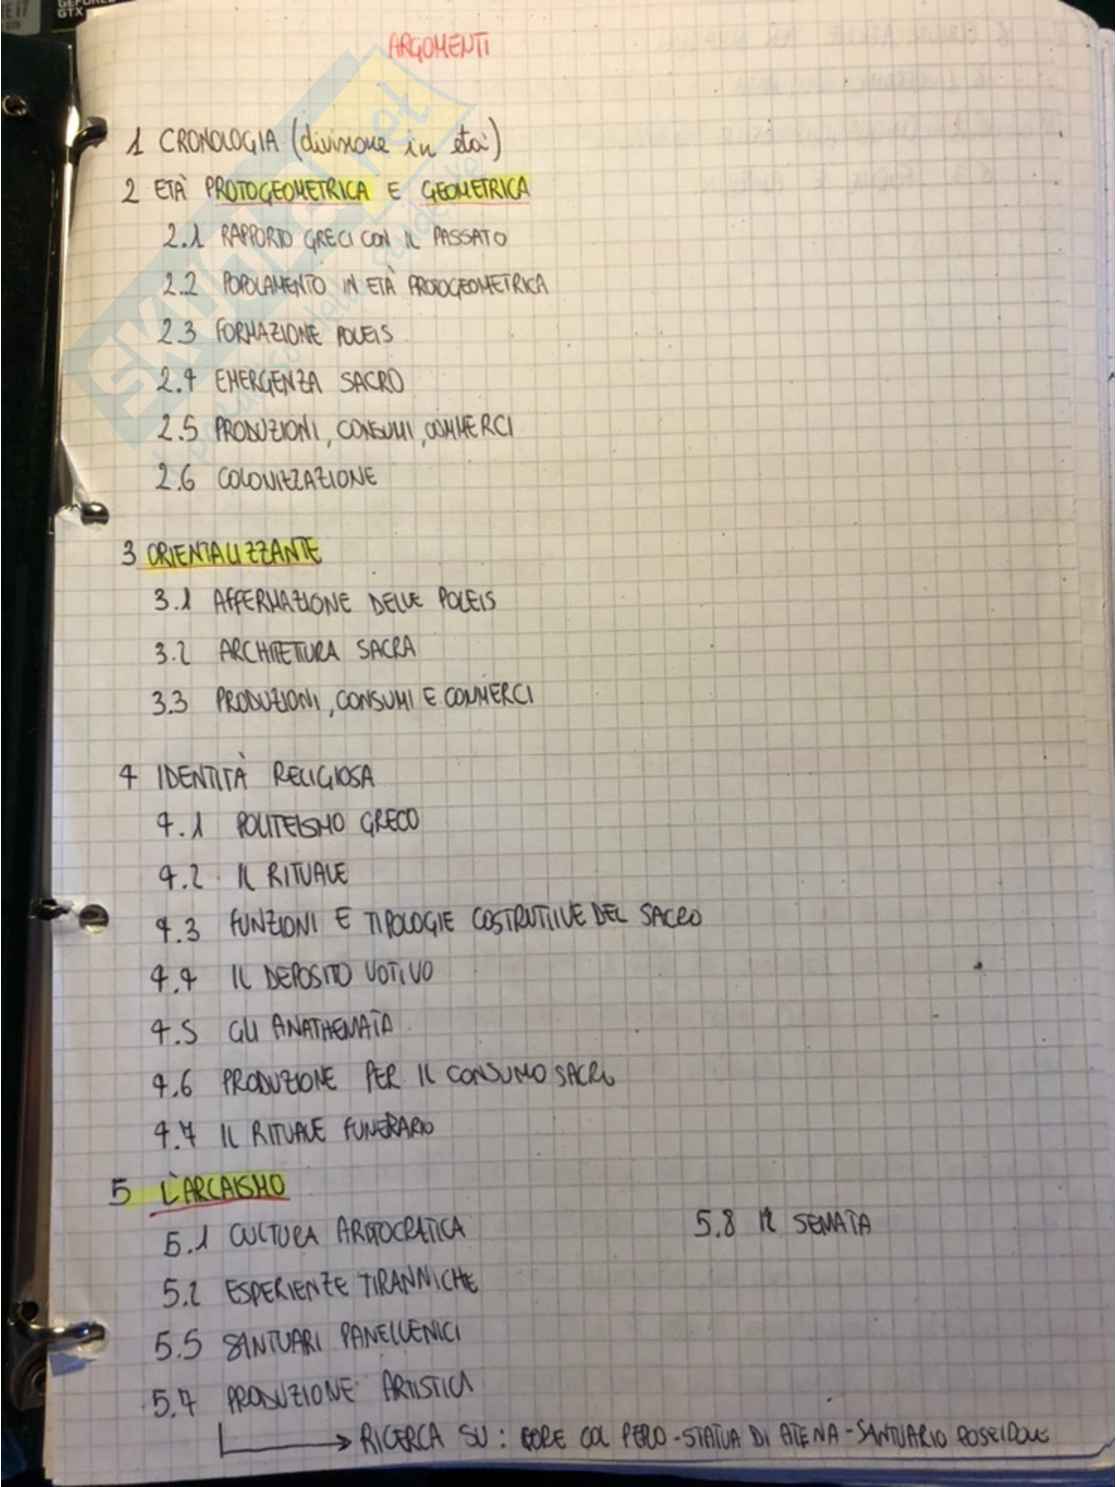 GEFORCE
GTX
ARGOMENTI
1 CRONOLOGIA (divisione in età)
2 ETÀ PROTOGEOMETRICA E GEOMETRICA
2.1 RAPPORTO GRECI CON IL PASSATO
2.2 POPOLAMENTO IN ETÀ PROTOGEOMETRICA
2.3 FORMAZIONE POLEIS
2.4 EMERGENZA SACRO
2.5 PRODUZIONI, CONSUMI, COMMERCI
2.6 COLONIZZAZIONE
3 ORIENTALIZZANTE
3.1 AFFERMAZIONE DELLE POLEIS
3.2 ARCHITETTURA SACRA
3.3 PRODUZIONI, CONSUMI E COMMERCI
4 IDENTITÀ RELIGIOSA
4.1 POLITEISMO GRECO
4.2 IL RITUALE
4.3 FUNZIONI E TIPOLOGIE COSTRUTTIVE DEL SACRO
4.4 IL DEPOSITO VOTIVO
4.5 GLI ANATHEMATA
4.6 PRODUZIONE PER IL CONSUMO SACRO
4.7 IL RITUALE FUNERARIO
5 L'ARCAISMO
5.1 CULTURA ARISTOCRATICA
5.8 IL SEMATA
5.2 ESPERIENZE TIRANNICHE
5.5 SANTUARI PANELLENICI
5.7 PRODUZIONE ARTISTICA
RICERCA SU: KORE COL PEPLO - STATUA DI ATENA - SANTUARIO POSEIDONE